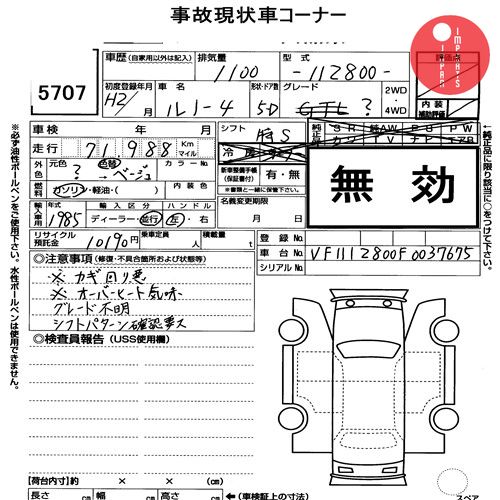 事故現状車コーナー
IMPORTS JAPAN
5707
車歴 (自家用以外は記入)
排気量
型式
評価点
1100
-112800-
初度登録年月
車名
形状・ドア数
グレード
2WD
4WD
内装
補助評価
H2/ 月
ルノー4
5D
GTL ?
車検 年 月
シフト
走行 71,988 Km マイル
元色 色替
? → ベージュ
カラーNo.
外色
新車整備手帳 (保証書付) 有・無
燃料 ガソリン・軽油・( )
内装色
※書類と一緒に保管して下さい。
無効
輸入車用
年式 輸入区分 ハンドル
1985 ディーラー・並行 左・右
名義変更期限
月 日
リサイクル預託金 10190円
乗車定員 人
積載量 t
登録No.
車台No. VF1112800F0037675
シリアルNo.
◎注意事項 (修復・不具合箇所および状態等)
※ カギ回り悪
※ オーバーヒート気味
グレード不明
シフトパターン確認要ス
◎検査員報告 (USS使用欄)
【荷台内寸】 約 × ×
長さ cm 幅 cm 高さ cm
(車検証上の寸法)
スペア
※必ず油性ボールペンをご使用下さい。水性ボールペンは使用できません。
←純正品に限り該当に○をつけて下さい。